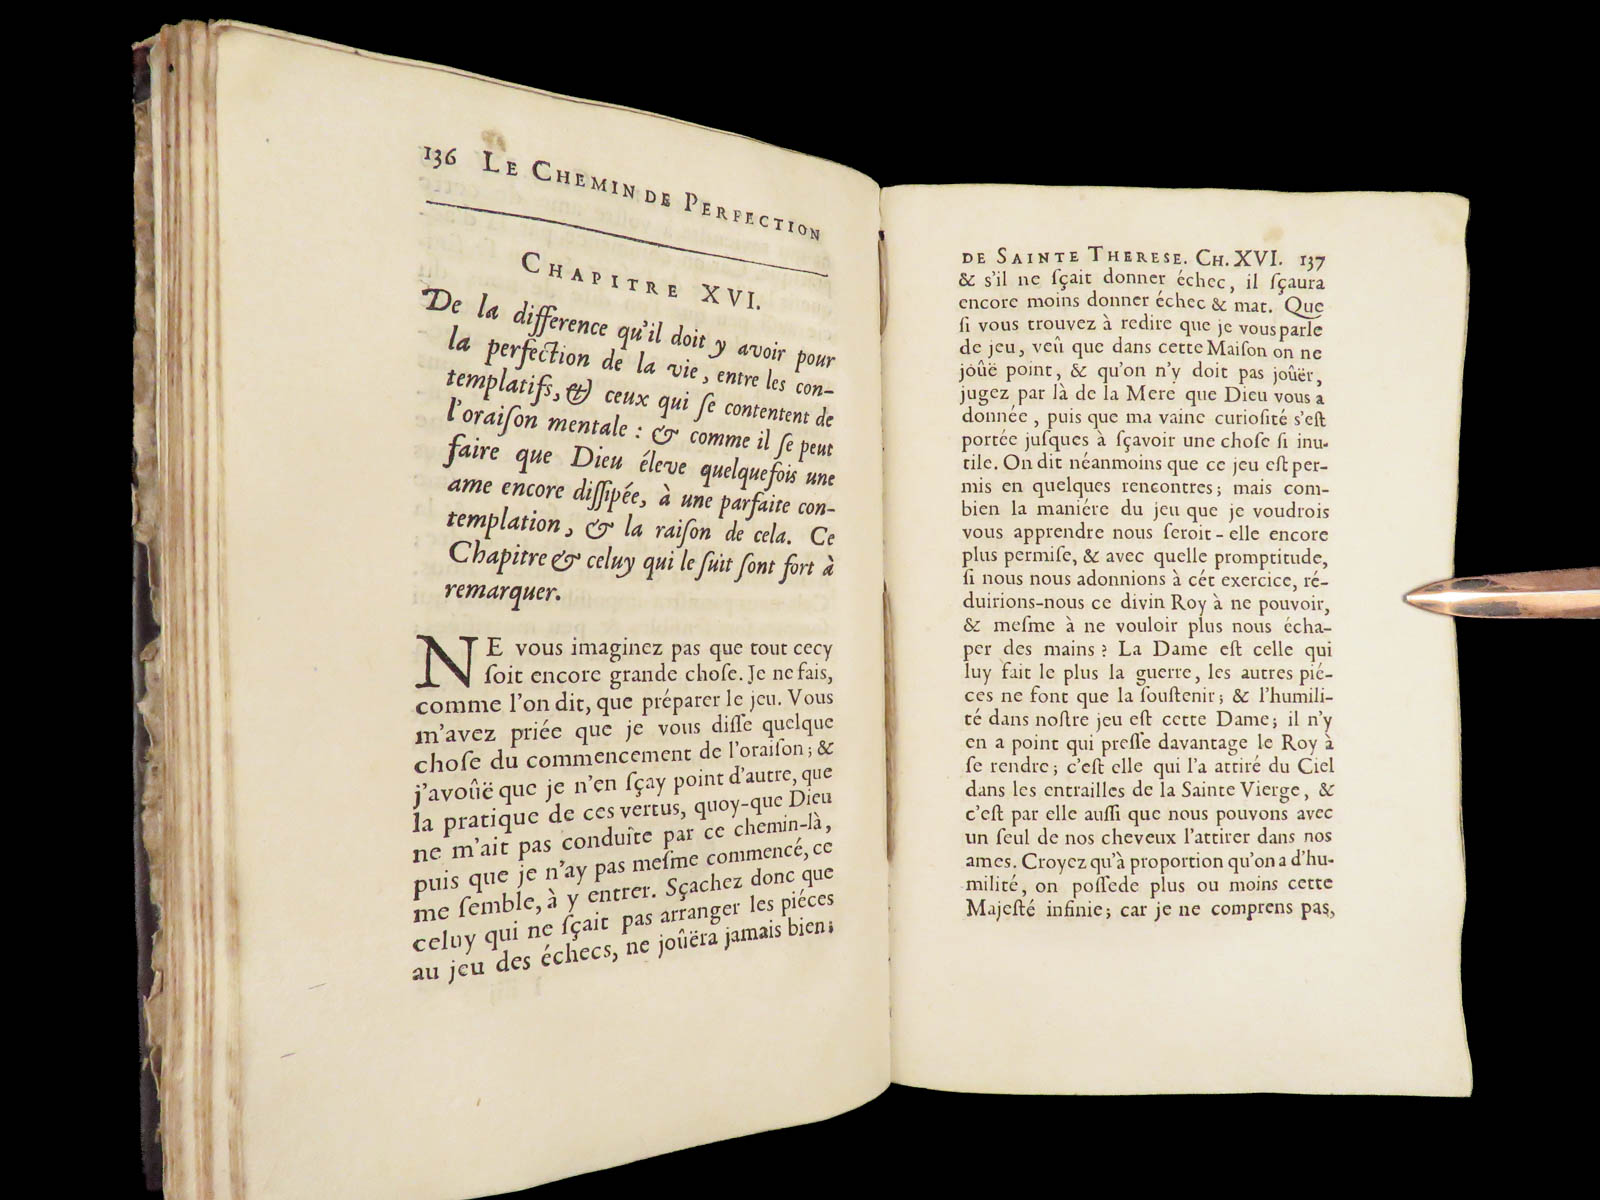 136 LE CHEMIN DE PERFECTION
CHAPITRE XVI.
De la difference qu'il doit y avoir pour
la perfection de la vie, entre les con-
templatifs, & ceux qui ſe contentent de
l'oraiſon mentale : & comme il ſe peut
faire que Dieu éleve quelquefois une
ame encore diſſipée, à une parfaite con-
templation, & la raiſon de cela. Ce
Chapitre & celuy qui le ſuit ſont fort à
remarquer.
NE vous imaginez pas que tout cecy
ſoit encore grande choſe. Je ne fais,
comme l'on dit, que préparer le jeu. Vous
m'avez priée que je vous diſſe quelque
choſe du commencement de l'oraiſon; &
j'avoûë que je n'en ſçay point d'autre, que
la pratique de ces vertus, quoy-que Dieu
ne m'ait pas conduite par ce chemin-là,
puis que je n'ay pas meſme commencé, ce
me ſemble, à y entrer. Sçachez donc que
celuy qui ne ſçait pas arranger les piéces
au jeu des échecs, ne joûëra jamais bien;
DE SAINTE THERESE. CH. XVI. 137
& s'il ne ſçait donner échec, il ſçaura
encore moins donner échec & mat. Que
ſi vous trouvez à redire que je vous parle
de jeu, veû que dans cette Maiſon on ne
joûë point, & qu'on n'y doit pas joûër,
jugez par là de la Mere que Dieu vous a
donnée, puis que ma vaine curioſité s'eſt
portée juſques à ſçavoir une choſe ſi inu-
tile. On dit néanmoins que ce jeu eſt per-
mis en quelques rencontres; mais com-
bien la maniére du jeu que je voudrois
vous apprendre nous ſeroit-elle encore
plus permiſe, & avec quelle promptitude,
ſi nous nous adonnions à cét exercice, ré-
duirions-nous ce divin Roy à ne pouvoir,
& meſme à ne vouloir plus nous écha-
per des mains ? La Dame eſt celle qui
luy fait le plus la guerre, les autres pié-
ces ne font que la ſouſtenir; & l'humili-
té dans noſtre jeu eſt cette Dame; il n'y
en a point qui preſſe davantage le Roy à
ſe rendre; c'eſt elle qui l'a attiré du Ciel
dans les entrailles de la Sainte Vierge, &
c'eſt par elle auſſi que nous pouvons avec
un ſeul de nos cheveux l'attirer dans nos
ames. Croyez qu'à proportion qu'on a d'hu-
milité, on poſſede plus ou moins cette
Majeſté infinie; car je ne comprens pas,